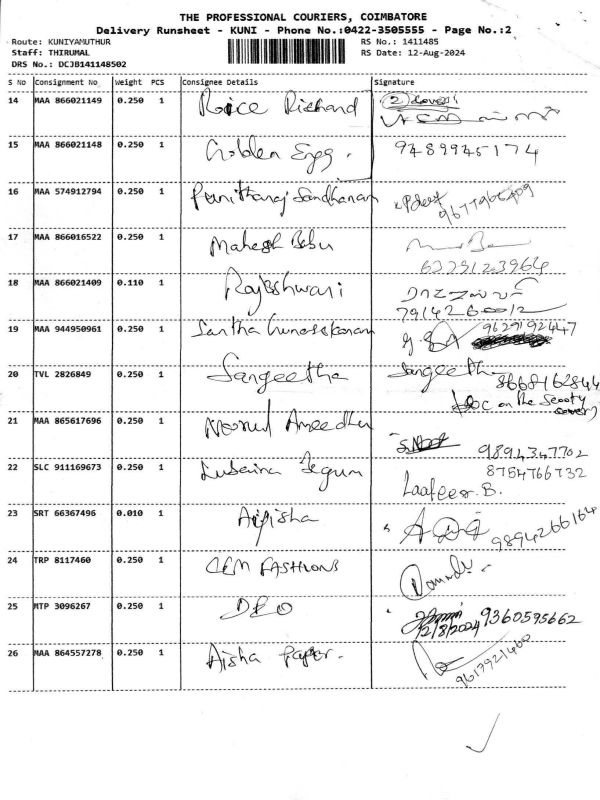 THE PROFESSIONAL COURIERS, COIMBATORE
Delivery Runsheet - KUNI - Phone No.:0422-3505555 - Page No.:2
Route: KUNIYAMUTHUR RS No.: 1411485
Staff: THIRUMAL RS Date: 12-Aug-2024
DRS No.: DCJB141148502
S No Consignment No Weight PCS Consignee Details Signature
14 MAA 866021149 0.250 1 Rice Richard
15 MAA 866021148 0.250 1 Golden Eggs. 9489945174
16 MAA 574912794 0.250 1 Punithanaj Sandhanam
17 MAA 866016522 0.250 1 Mahesh Babu
6223123964
18 MAA 866021409 0.110 1 Rajeshwari
7914260012
19 MAA 944950961 0.250 1 Santha Gunasekaram 9629192447
20 TVL 2826849 0.250 1 Sangeetha Sangeeth 8668162844
on the Scooty
cover)
21 MAA 865617696 0.250 1
9894347702
22 SLC 911169673 0.250 1 Lubaina Begum 8754766732
Laafeer.B.
23 SRT 66367496 0.010 1 9894266164
24 TRP 8117460 0.250 1 FASHIONS
25 MTP 3096267 0.250 1 9360595662
12/8/2024
26 MAA 864557278 0.250 1 Aisha Paper.
9617921400